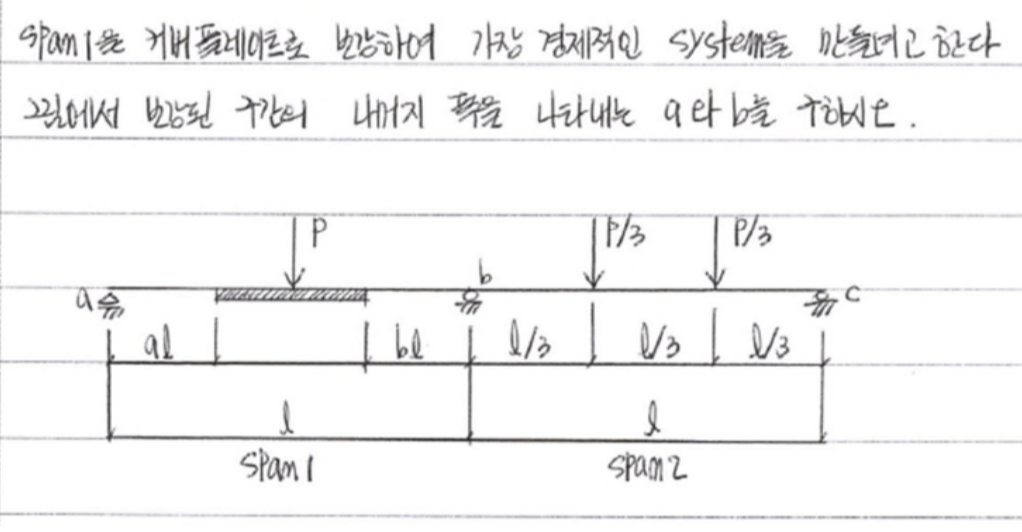 span1을 커버플레이트로 보강하여 가장 경제적인 system을 만들려고 한다
그림에서 보강된 구간의 나머지 폭을 나타내는 a와 b를 구하시오.
P P/3 P/3
a b c
al bl l/3 l/3 l/3
l l
span1 span2